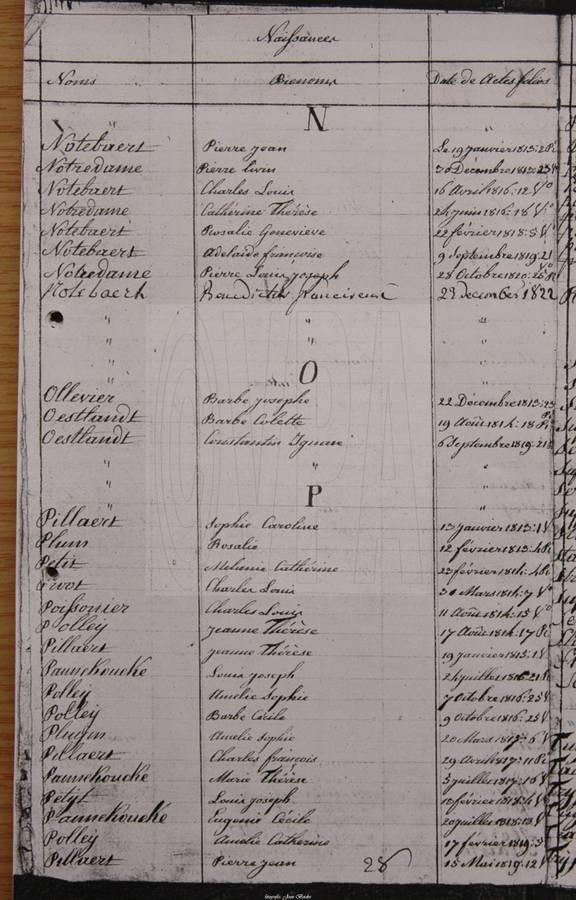 Naissances
Noms Prenoms Date de Actes folios
N
Notebaert Pierre jean Le 19 janvier 1813:2
Notredame Pierre livin 30 Décembre 1813:
Notebaert Charles Louis 16 Avril 1816:12 Vo
Notredame Catherine Thérèse 24 juin 1816:18 Vo
Notebaert Rosalie Genevieve 22 février 1818:5 Vo
Notebaert Adelaide françoise 9 Septembre 1819:21
Notredame Pierre Louis joseph 28 Octobre 1820:25
Notebaert Benedictus franciscus 29 December 1822
O
Ollevier Barbe josephe 22 Décembre 1813:23
Oestlandt Barbe Colette 19 Août 1814:18
Oestlandt Constantin Ignace 6 Septembre 1819:21
P
Pillaert Sophie Caroline 13 janvier 1813:1V
Plum Rosalie 12 février 1813:4
Petit Melanie Cathérine 23 février 1814:4
Charles Louis 30 Mars 1814:7 Vo
Poissonier Charles Louis 11 Août 1814:15 Vo
Polley jeanne Thérèse 17 Août 1814:17
Pillaert jeanne Thérèse 19 janvier 1815:1V
Pannekoucke Louis joseph 24 juillet 1816:21
Polley Amélie Sophie 7 Octobre 1816:25V
Polley Barbe Cécile 9 Octobre 1816:25V
Amelie Sophie 20 Mars 1817:6V
Pillaert Charles françois 29 Avril 1817:11
Pannekoucke Marie Thérèse 3 juillet 1817:16V
Petijt Louis joseph février 1818:4V
Pannekoucke Eugenie Cécile 20 juillet 1818:18V
Polley Amelie Catherine 17 février 1819:5
Pillaert Pierre jean 15 Mai 1819:12V
28